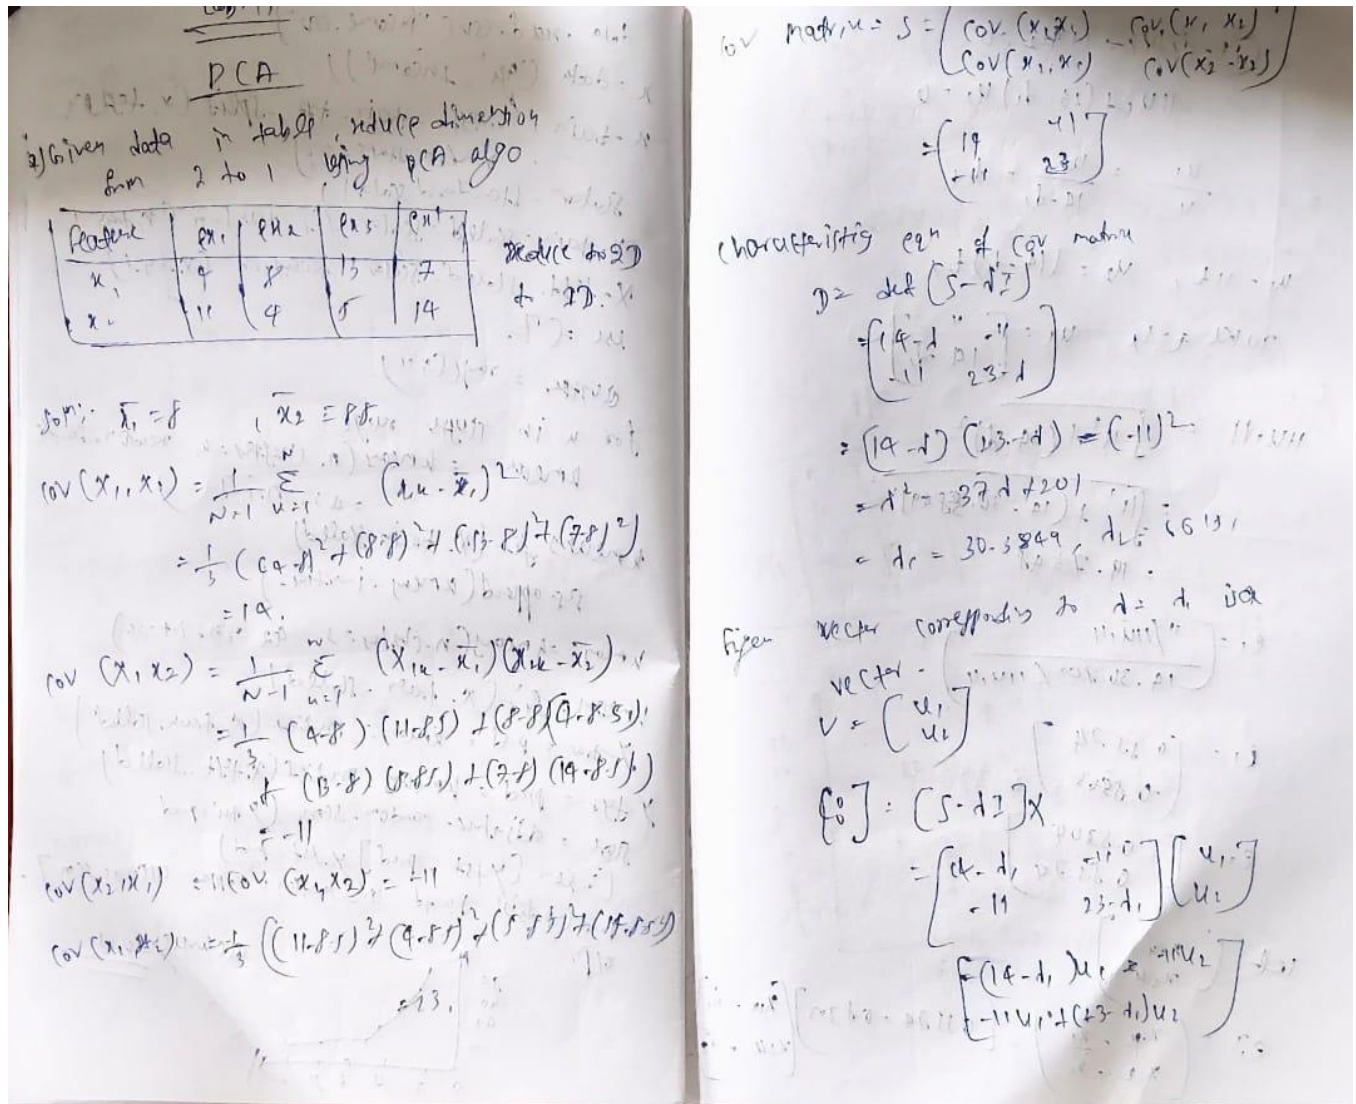 PCA
Given data in table, reduce dimension
from 2 to 1 using PCA algo
Feature ex1 ex2 ex3 ex4
x1 4 8 13 7
x2 11 4 5 14
Reduce to 2D
to 1D.
soln:- x̄1 = 8 , x̄2 = 8.5
cov (x1, x1) = 1/N-1 Σ N k=1 (x1k - x̄1)²
= 1/3 ((4-8)² + (8-8)² + (13-8)² + (7-8)²)
= 14.
cov (x1 x2) = 1/N-1 Σ N k=1 (x1k - x̄1)(x2k - x̄2)
= 1/3 (4-8) (11-8.5) + (8-8)(4-8.5)
+ (13-8) (5-8.5) + (7-8) (14-8.5)
= -11
cov (x2, x1) = cov (x1, x2) = -11
cov (x1 x2) = 1/3 ((11-8.5)² + (4-8.5)² + (5-8.5)² + (14-8.5)²)
= 23.
cov matrix = S = (cov (x1 x1) cov (x1 x2)
cov (x2, x1) cov (x2 x2))
= [14 -11
-11 23]
characteristic eqn of cov matrix
D = det (S - λI)
= (14-λ -11
-11 23-λ)
= (14-λ) (23-λ) - (-11)²
= λ² - 37λ + 201
= λ1 = 30.3849, λ2 = 6.6151
Eigen vector corresponding to λ = λ1 is a
vector
V = [u1
u2]
[0 0] = [S - λI] X
= [14 - λ1 -11
-11 23 - λ1] [u1
u2]
= [(14 - λ1) u1 - 11u2
-11u1 + (23 - λ1) u2]